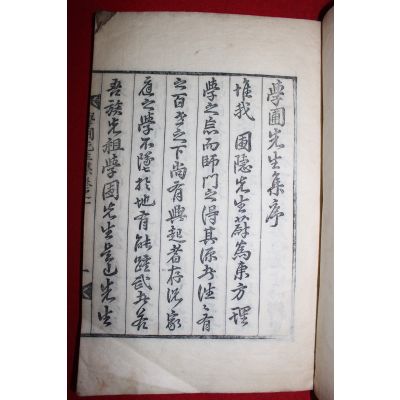 學圃先生集序
惟我 圃隱先生蔚爲東方理
學之宗而師門之得其源者往々有
之百年之下尚有興起者存況家
庭之學不墜於地有能踵武者若
吾族先祖學圃先生是也先生
學圃先生集卷之一